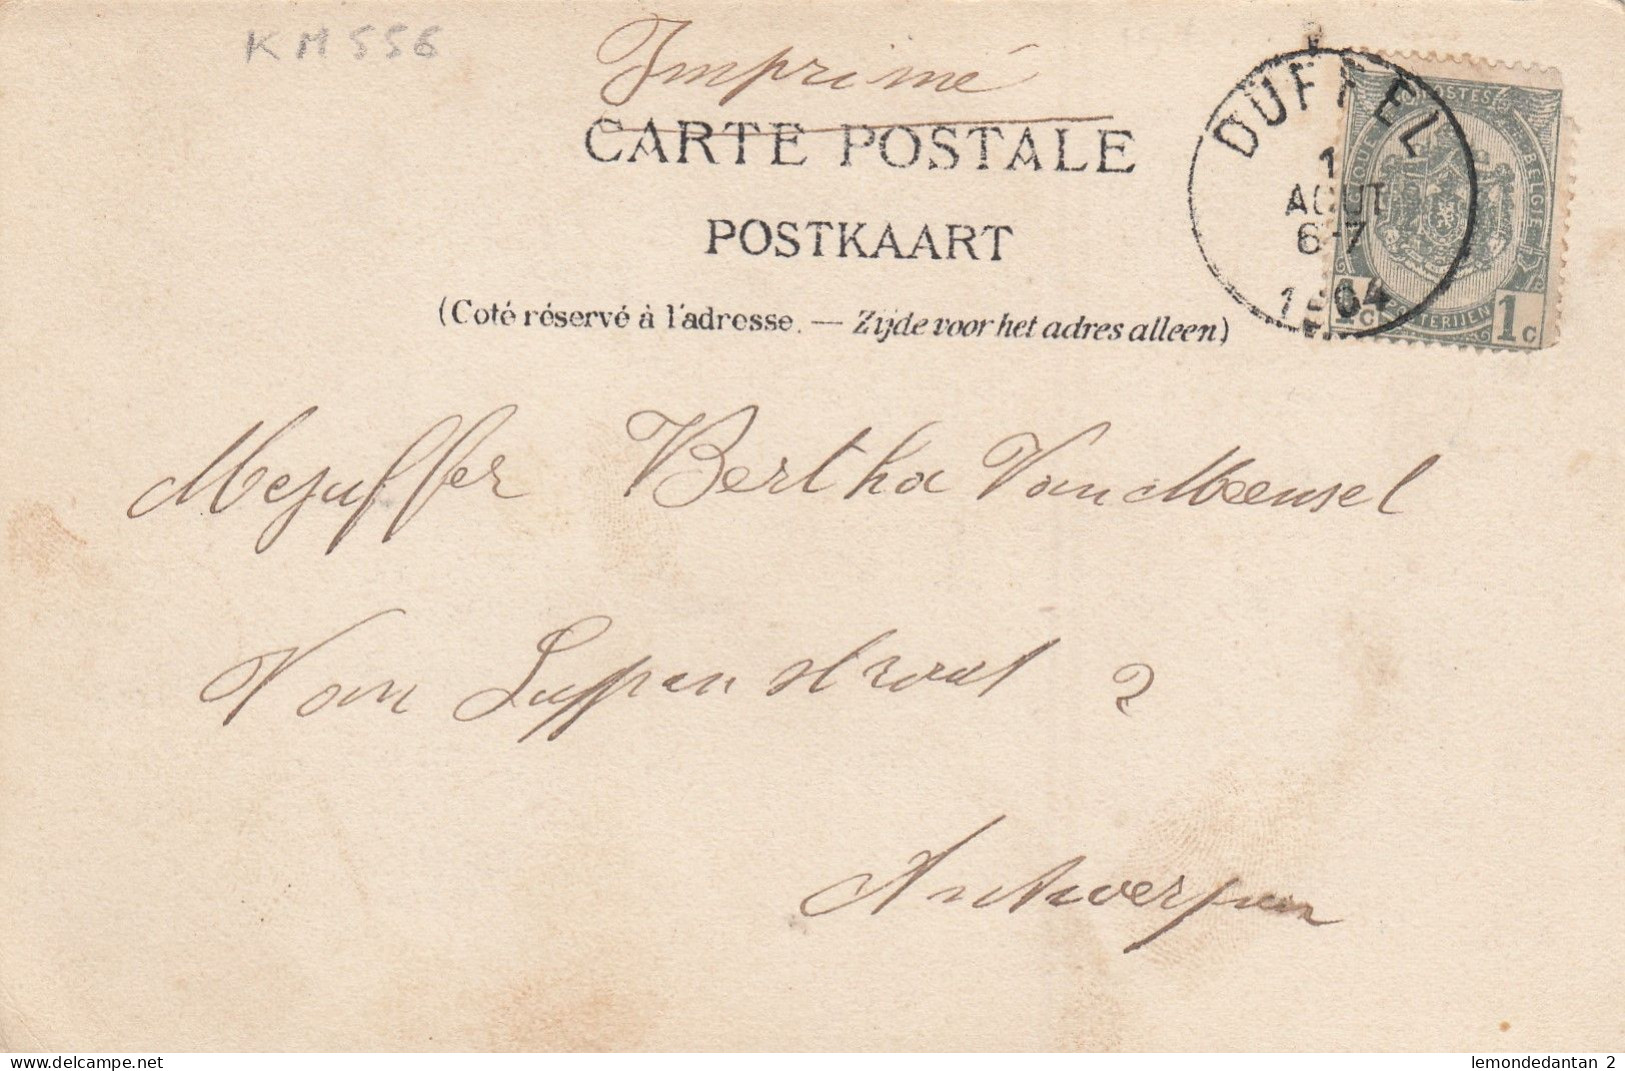 KM 556
Imprimé
CARTE POSTALE
POSTKAART
(Coté réservé à l'adresse. — Zijde voor het adres alleen)
DUFFEL
1
AOUT
6-7
1904
POSTES BELGIQUE
BELGIE
1c
1c
Mejuffer Bertha Van Meensel
Van Luppenstraat 2
Antwerpen
lemondedantan 2